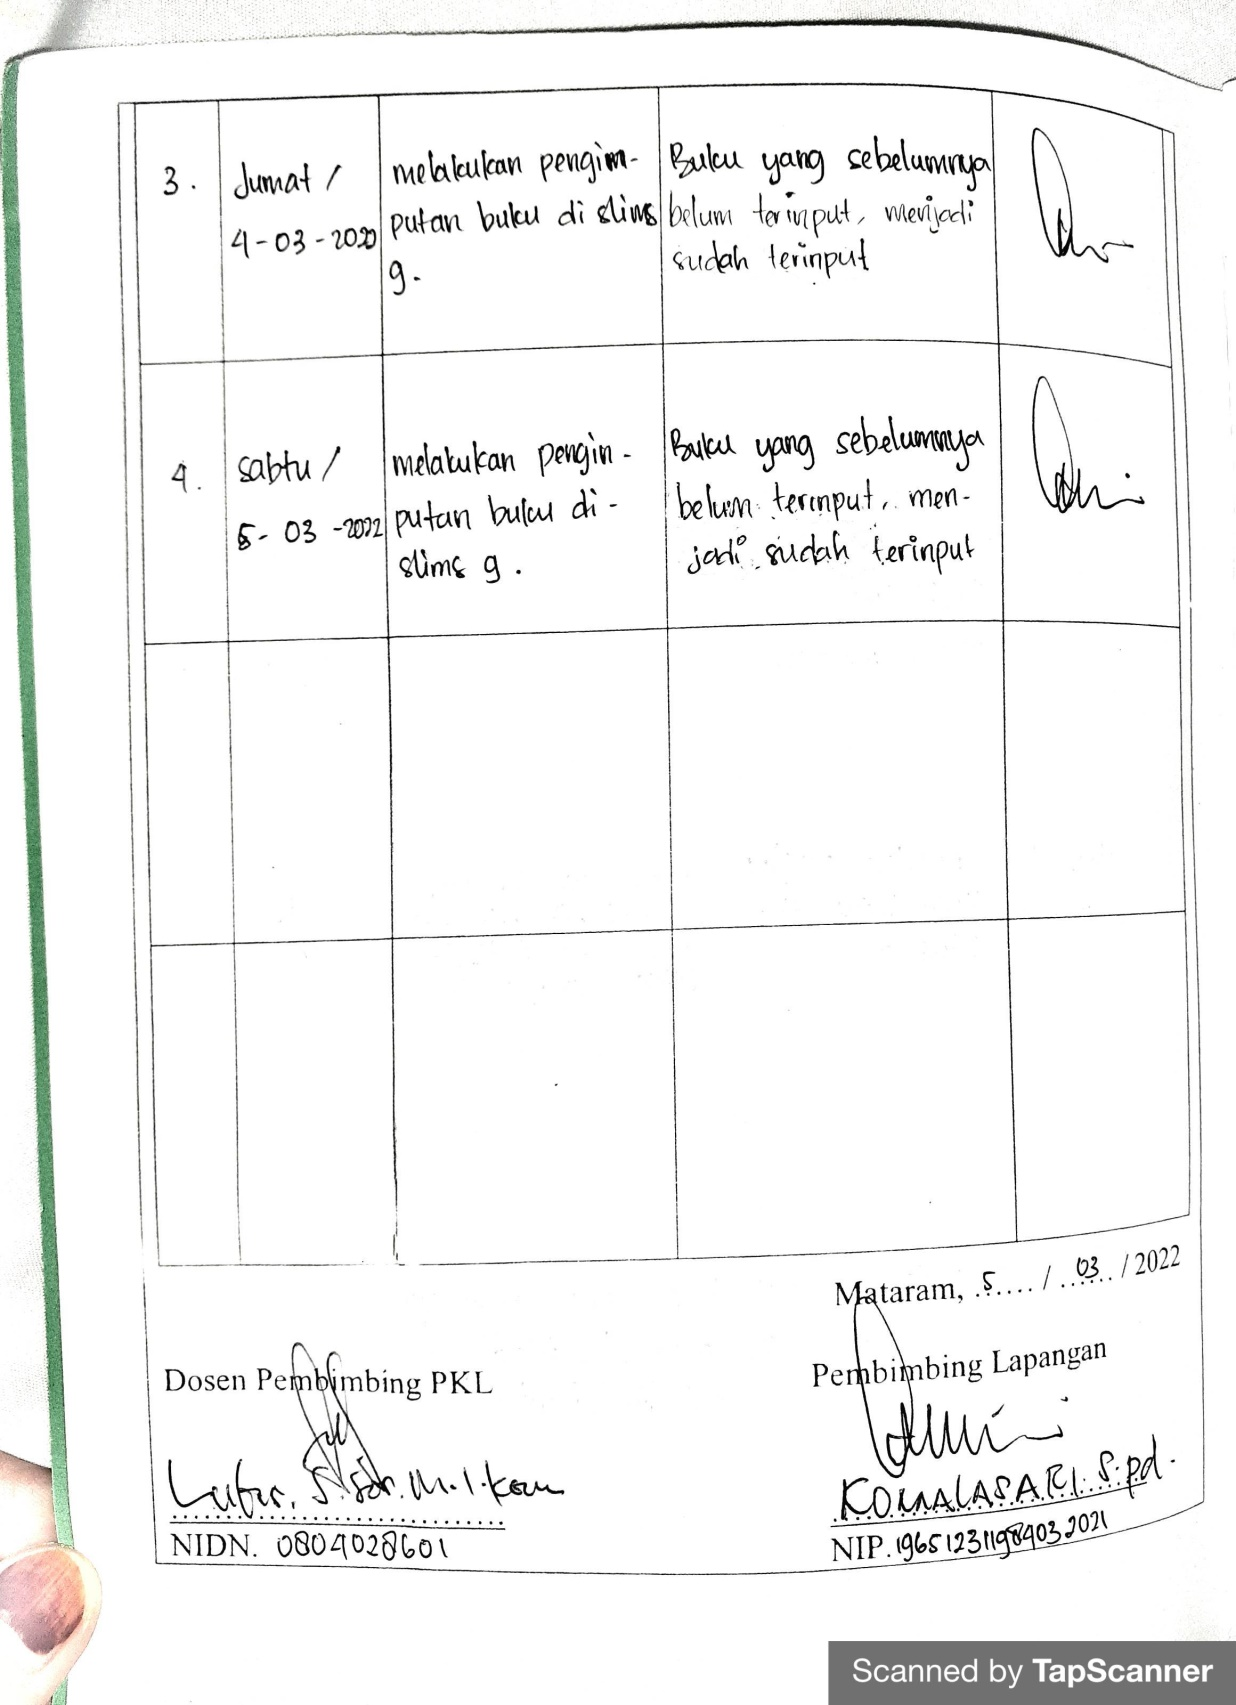 3.
Jumat /
4-03-2022
melakukan pengim-
putan buku di slims
9.
Buku yang sebelumnya
belum terinput, menjadi
sudah terinput
4.
sabtu /
5-03-2022
melakukan pengin-
putan buku di-
slims 9.
Buku yang sebelumnya
belum terinput, men-
jadi sudah terinput
Mataram, 5 / 03 / 2022
Dosen Pembimbing PKL
NIDN. 0804028601
Pembimbing Lapangan
KOMALASARI. S.pd.
NIP. 196512311984032021
Scanned by TapScanner